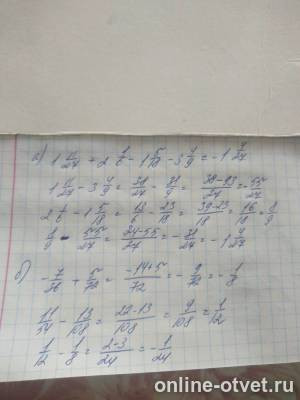 а) 1 11/27 + 2 1/6 - 1 5/18 - 3 4/9 = -1 4/27
1 11/27 - 3 4/9 = 38/27 - 31/9 = (38-93)/27 = -55/27
2 1/6 - 1 5/18 = 13/6 - 23/18 = (39-23)/18 = 16/18 = 8/9
8/9 - 55/27 = (24-55)/27 = -31/27 = -1 4/27
б) -7/36 + 5/72 = (-14+5)/72 = -9/72 = -1/8
11/54 - 13/108 = (22-13)/108 = 9/108 = 1/12
1/12 - 1/8 = (2-3)/24 = -1/24
online-otvet.ru